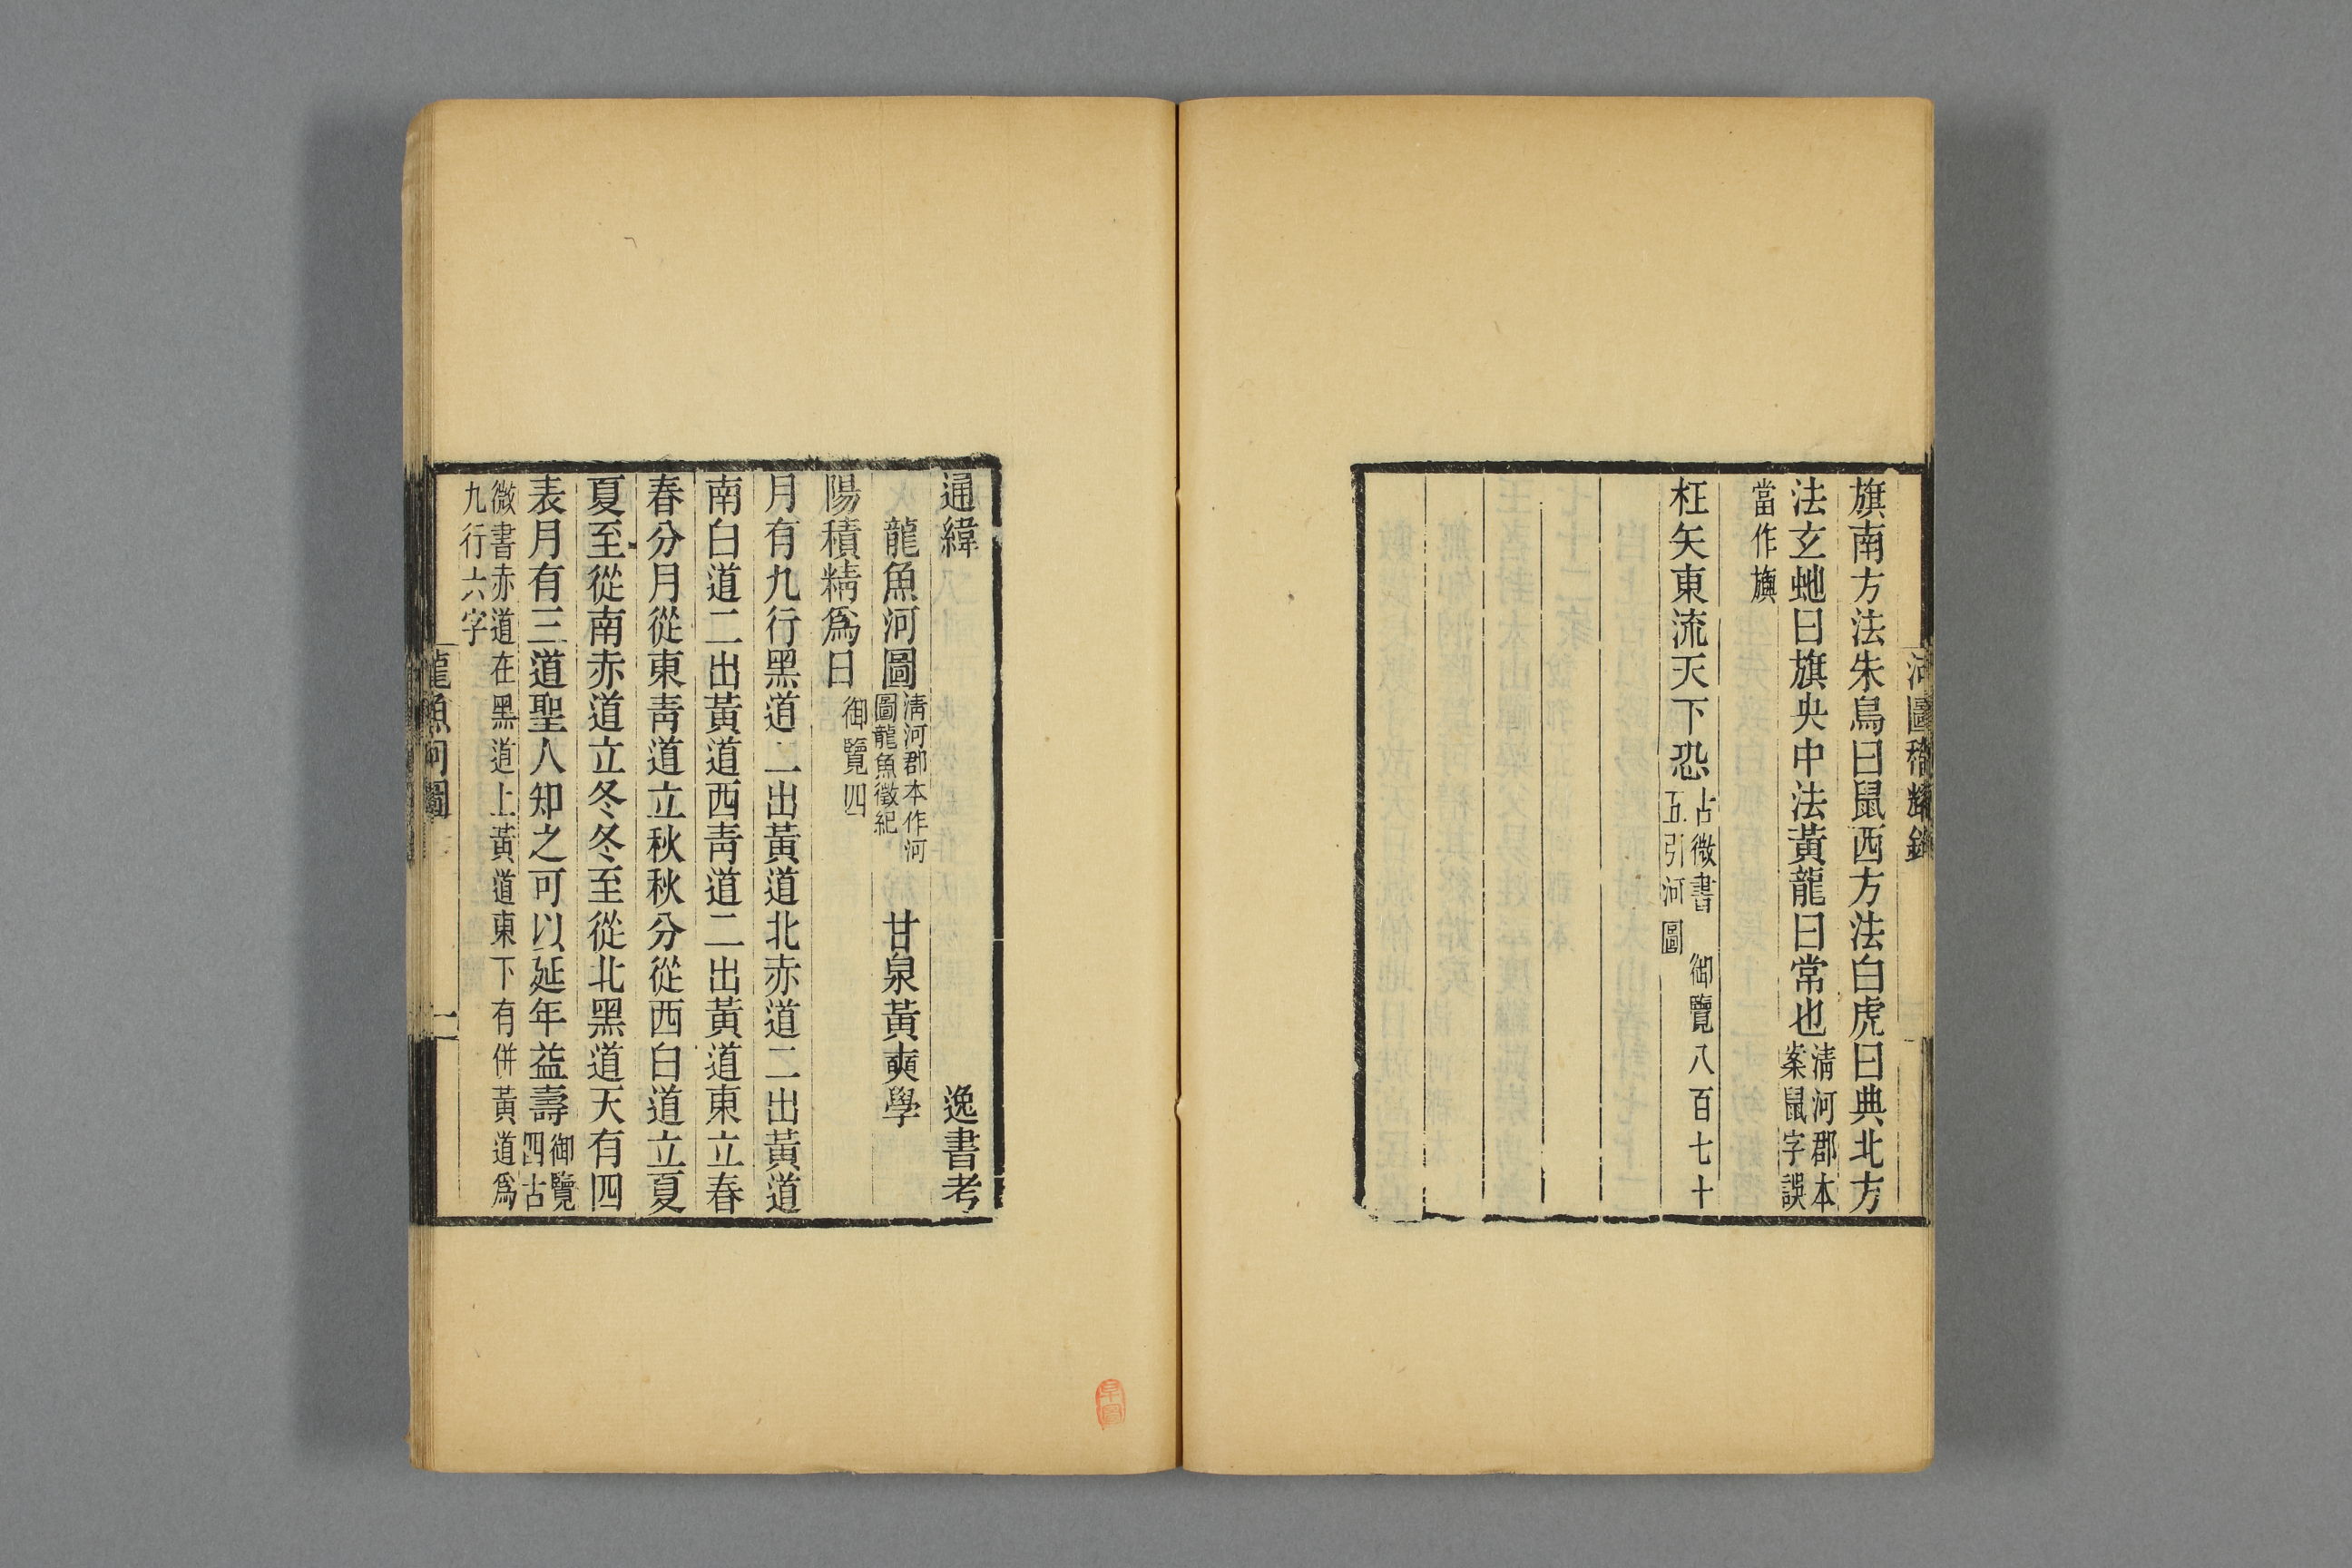 旗南方法朱鳥曰鼠西方法白虎曰典北方
法玄虵曰旗央中法黃龍曰常也清河郡本案鼠字誤
當作旟
枉矢東流天下恐占微書五引河圖 御覽八百七十
通緯 逸書考
龍魚河圖清河郡本作河圖龍魚徵紀 甘泉黃奭學
陽積精爲日御覽四
月有九行黑道二出黃道北赤道二出黃道
南白道二出黃道西靑道二出黃道東立春
春分月從東靑道立秋秋分從西白道立夏
夏至從南赤道立冬冬至從北黑道天有四
表月有三道聖人知之可以延年益壽御覽四古
微書赤道在黑道上黃道東下有併黃道爲
九行六字
龍魚河圖 一